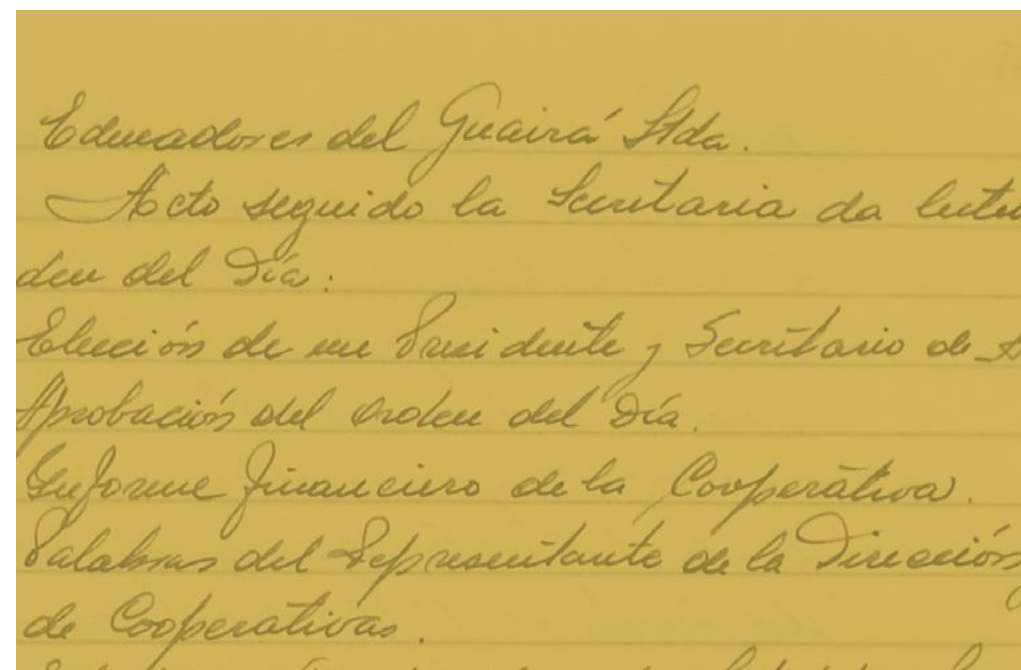 Educadores del Guairá Ltda.
Acto seguido la Secretaria da lectu
den del Día:
Elección de un Presidente y Secretario de A
Aprobación del orden del Día.
Informe Financiero de la Cooperativa.
Palabras del Representante de la Dirección
de Cooperativas.